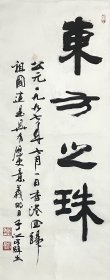 東方之珠
公元一九九七年七月一日香港回歸
祖國這是具有歷史意義的日子